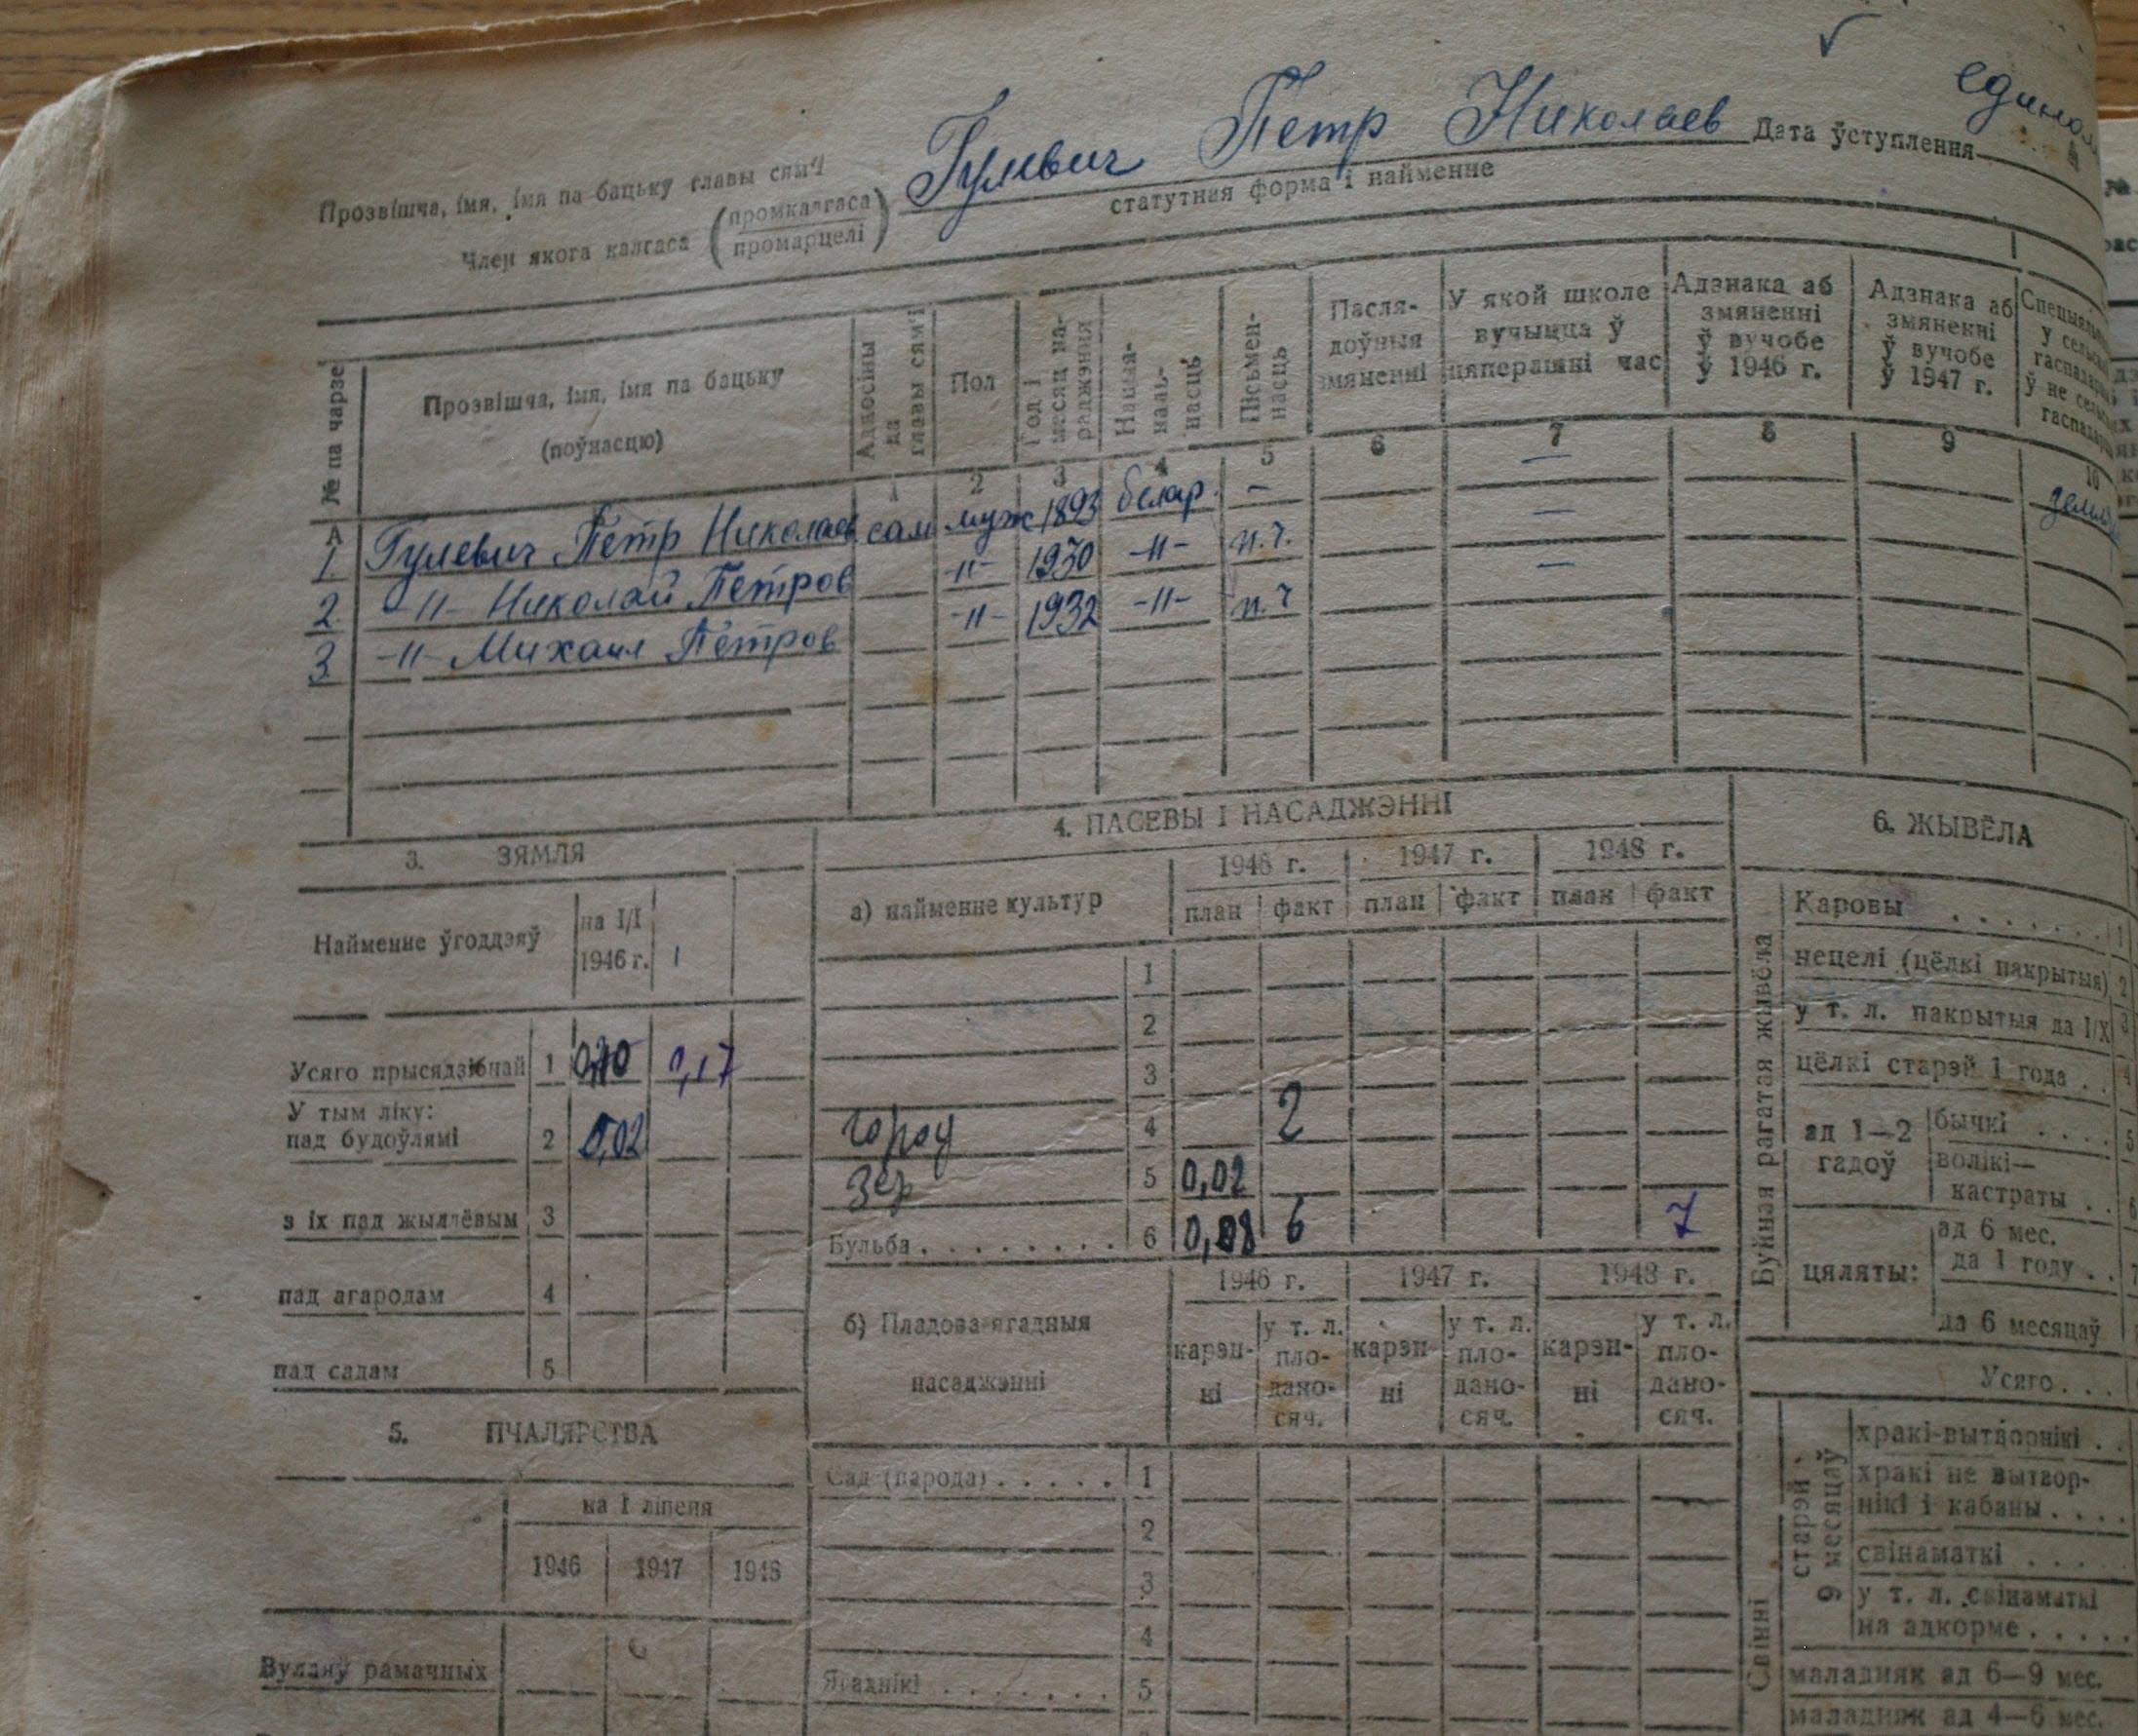 Гулевич Петр Николаев
Прозвішча, імя, імя па бацьку главы сям'і
Дата ўступлення
статутная форма і найменне
Член якога калгаса (промкалгаса / промарцелі)
№ па чарзе
Прозвішча, імя, імя па бацьку (поўнасцю)
Адносіны да главы сям'і
Пол
Год і месяц нараджэння
Нацыянальнасць
Пісьменнасць
Паслядоўныя змяненні
У якой школе вучыцца ў цяперашні час
Адзнака аб змяненні ў вучобе ў 1946 г.
Адзнака аб змяненні ў вучобе ў 1947 г.
А 1 2 3 4 5 6 7 8 9 10
1. Гулевич Петр Николаев сам муж 1893 белар. – –
2. -"- Николай Петров -"- 1930 -"- п.ч. –
3. -"- Михаил Петров -"- 1932 -"- п.ч –
3. ЗЯМЛЯ
Найменне ўгоддзяў
на I/I 1946 г.
Усяго прысядзібнай 1 0,17
У тым ліку:
пад будоўлямі 2 0,02
з іх пад жыллёвым 3
пад агародам 4
пад садам 5
5. ПЧАЛЯРСТВА
на I ліпеня
1946 1947 1948
Вулляў рамачных
4. ПАСЕВЫ І НАСАДЖЭННІ
а) найменне культур
1946 г. 1947 г. 1948 г.
план факт план факт план факт
1
2
3
4 2
Зер 5 0,02
Бульба 6 0,08 6 7
1946 г. 1947 г. 1948 г.
б) Пладова-ягадныя насаджэнні
карэнні
у т. л. пладаносяч.
карэнні
у т. л. пладаносяч.
карэнні
у т. л. пладаносяч.
Сад (парода) 1
2
3
4
Ягаднікі 5
6. ЖЫВЁЛА
Буйная рагатая жывёла
Каровы 1
нецелі (цёлкі пакрытыя) 2
у т. л. пакрытыя да I/X 3
цёлкі старэй 1 года 4
ад 1—2 гадоў
бычкі 5
волікі—кастраты 6
цяляты:
ад 6 мес. да 1 году 7
да 6 месяцаў
Усяго
Свінні
старэй 9 месяцаў
хракі-вытворнікі
хракі не вытворнікі і кабаны
свінаматкі
у т. л. свінаматкі на адкорме
маладняк ад 6—9 мес.
маладняк ад 4—6 мес.